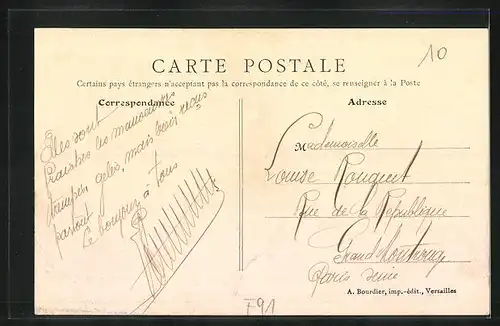 10
CARTE POSTALE
Certains pays étrangers n'acceptant pas la correspondance de ce côté, se renseigner à la Poste
Correspondance
Adresse
Elles sont
les manœuvres
gelés, mais bien reçus
partout
Le bonjour à tous
Mademoiselle
Louise Rouquet
Rue de la République
Grand Montrouge
Paris Seine
A. Bourdier, imp.-édit., Versailles
F91